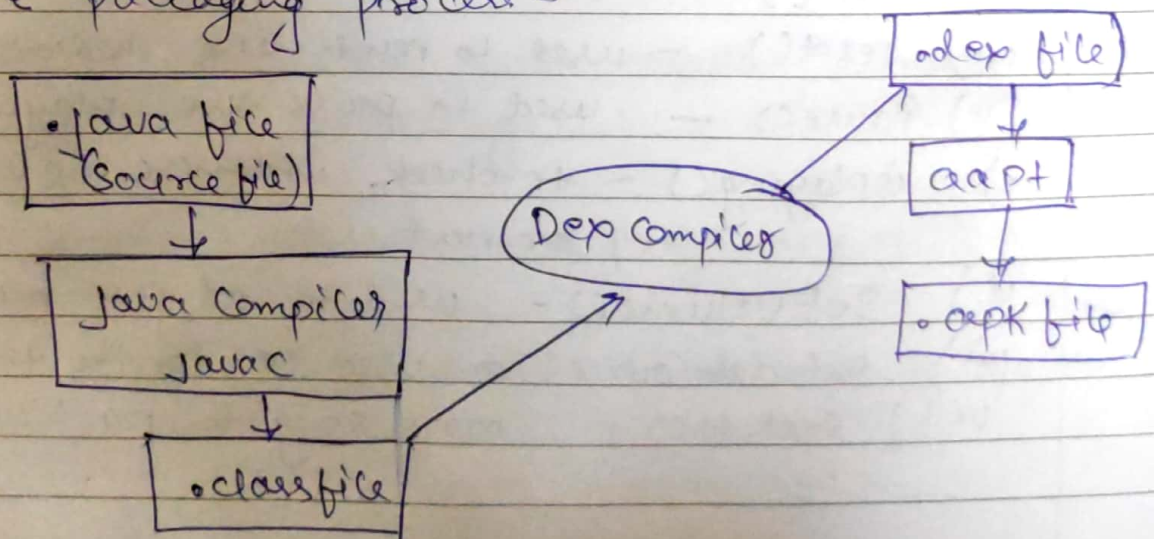 packaging process
.java file
(source file)
java compiler
javac
.classfile
Dex compiler
.dex file
aapt
.apk file